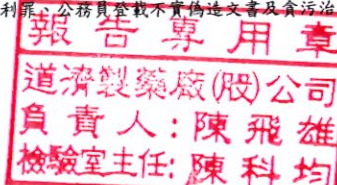 利罪、公務員登載不實偽造文書及貪污治
報告專用章
道濟製藥廠(股)公司
負責人:陳飛雄
檢驗室主任:陳科均